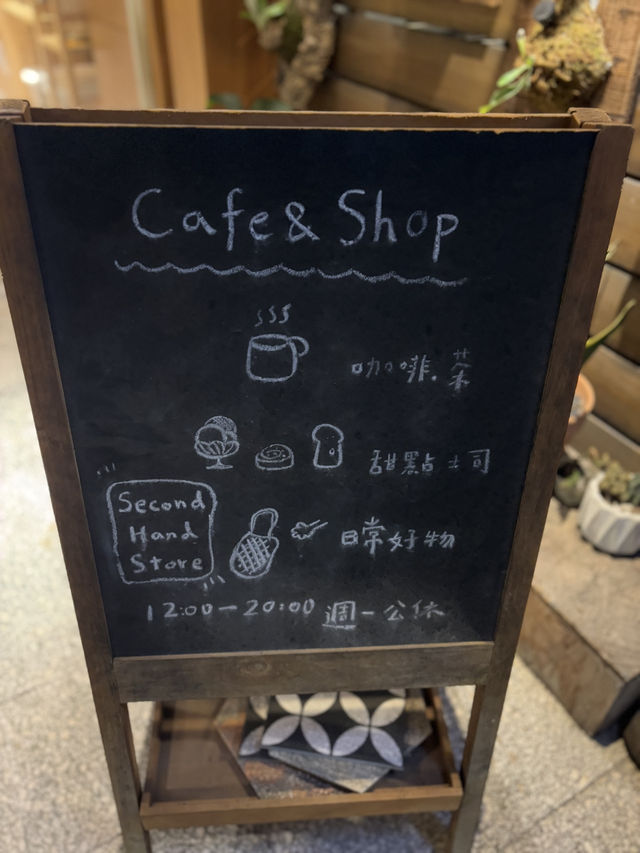 Cafe & Shop
咖啡.茶
甜點 土司
Second
Hand
Store
日常好物
12:00-20:00 週一公休